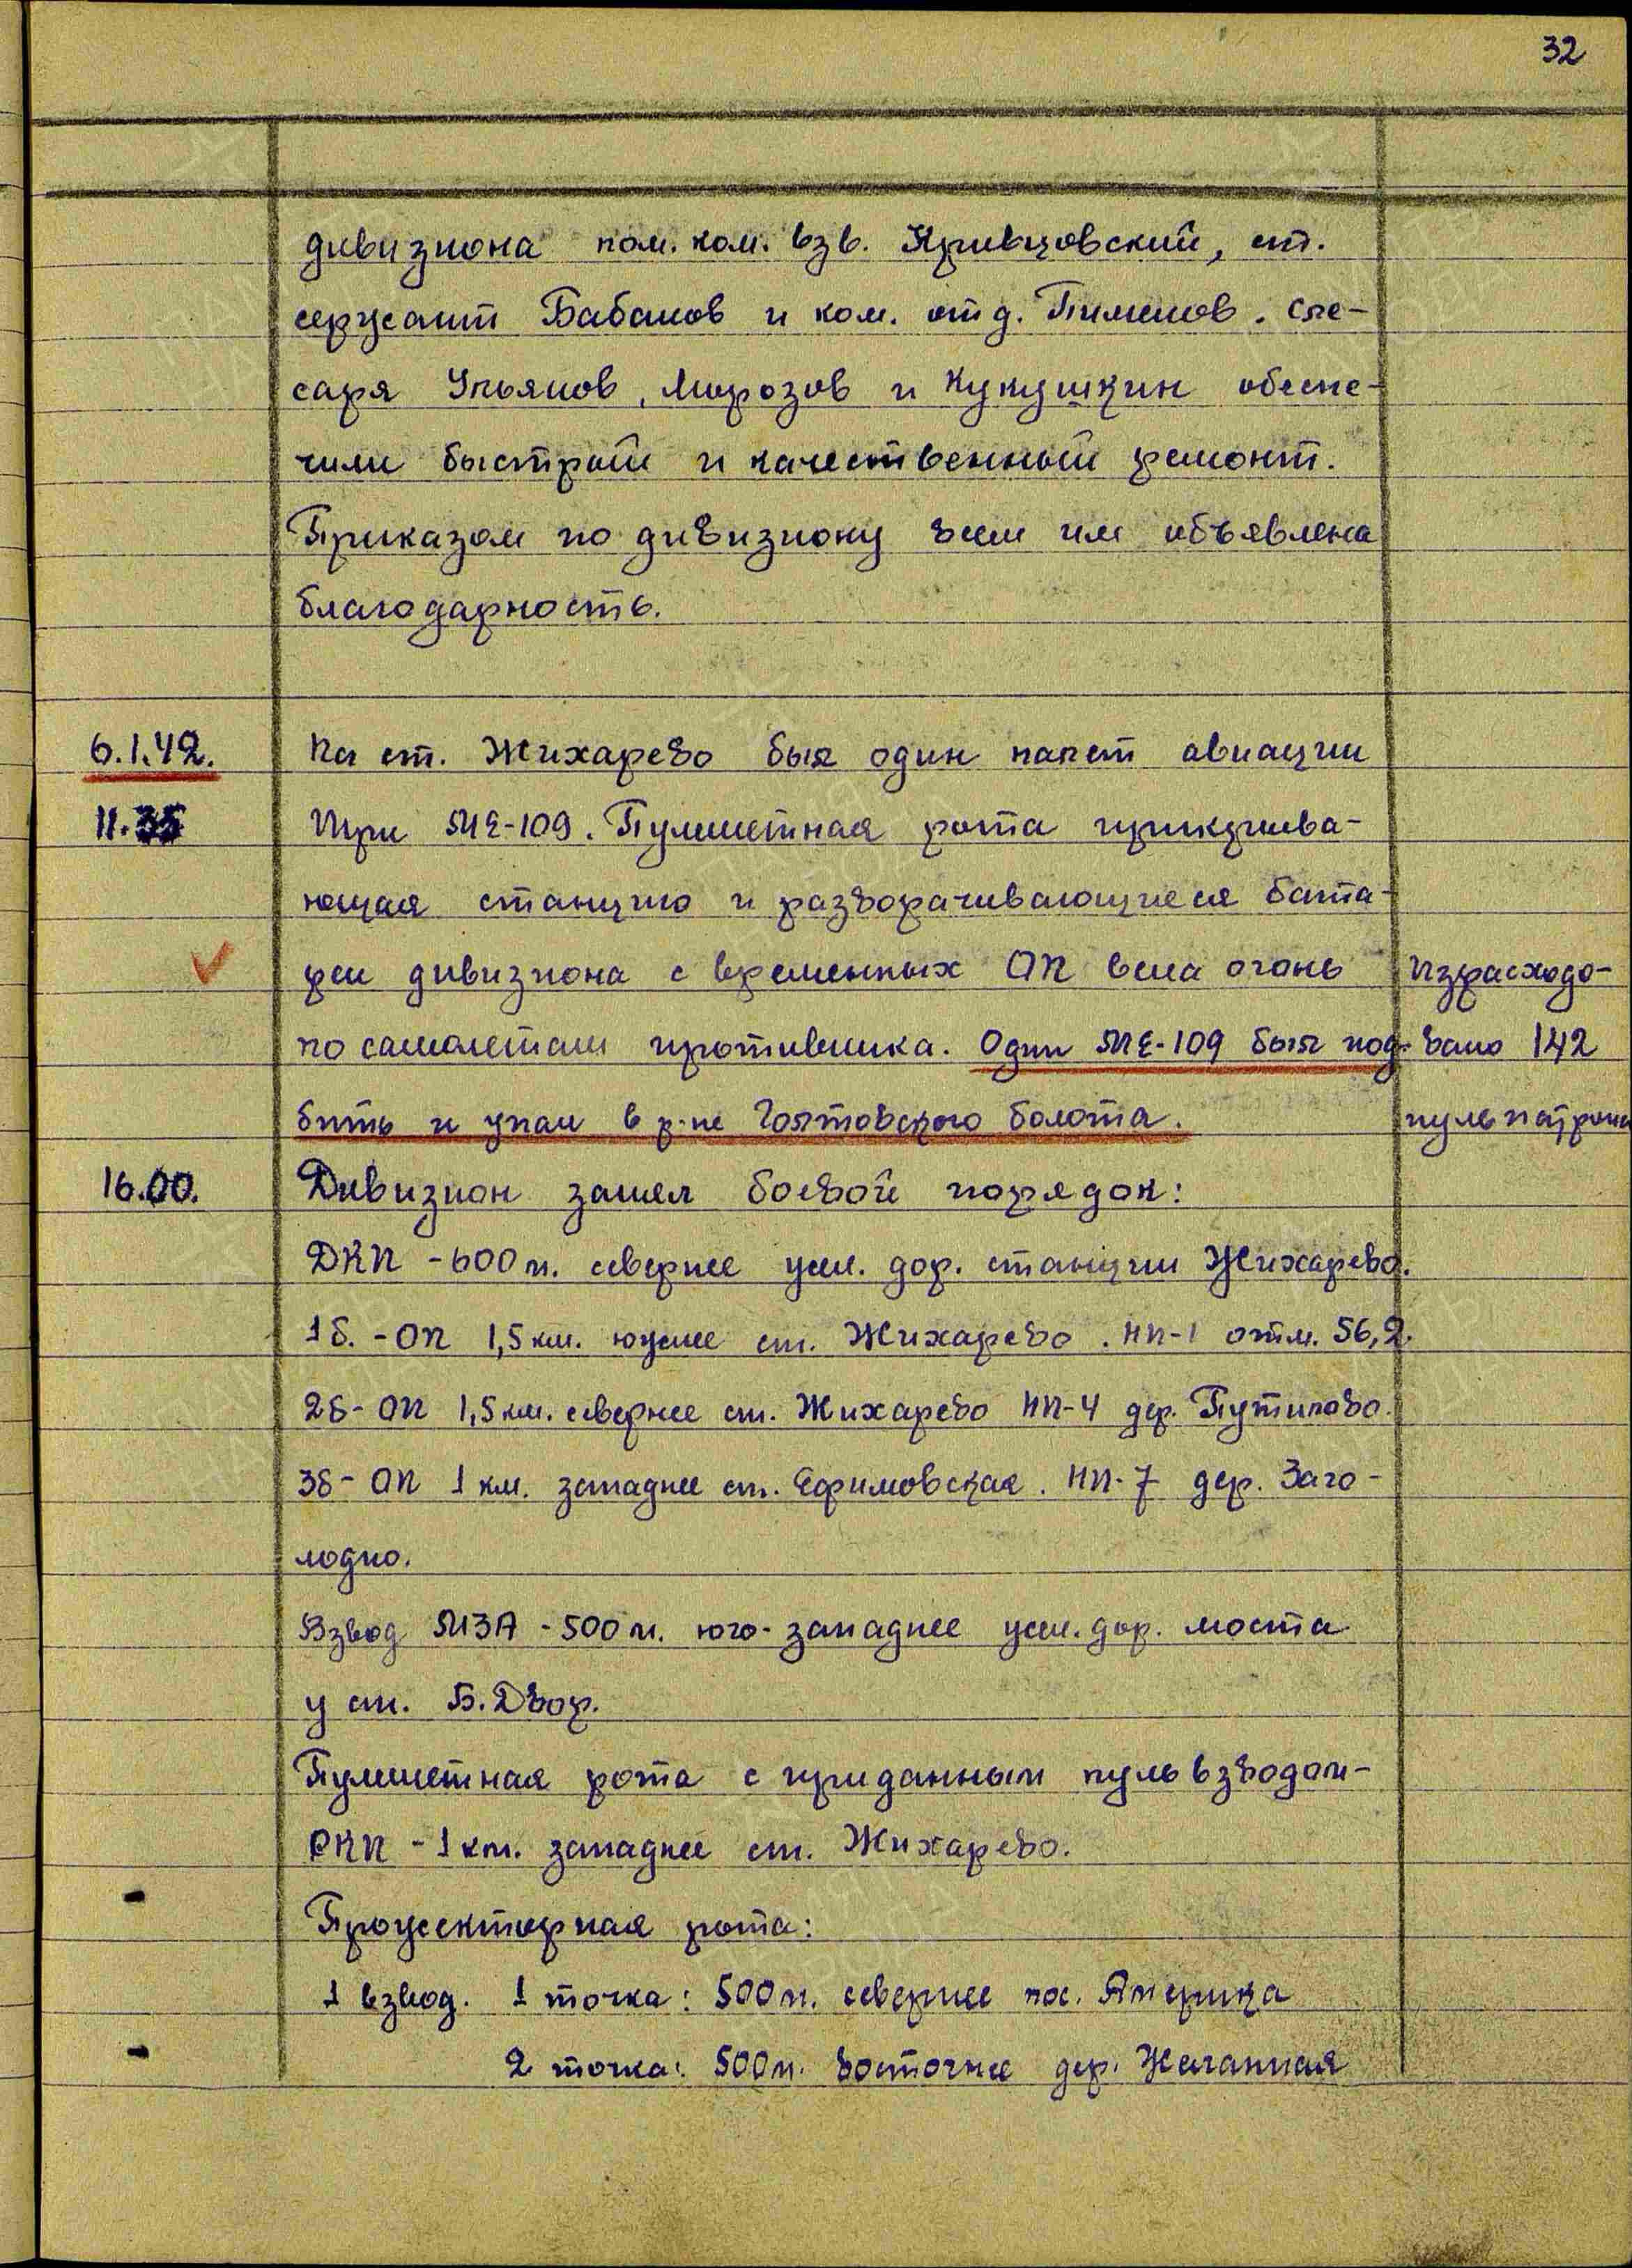 32
дивизиона пом. ком. взв. Кривцовский, ст.
сержант Бабанов и ком. отд. Пименов. Сле-
саря Ульянов, Морозов и Кукушкин обеспе-
чили быстрый и качественный ремонт.
Приказом по дивизиону всем им объявлена
благодарность.
6.1.42. На ст. Жихарево был один налет авиации
11.35 Три МЕ-109. Пулеметная рота прикрыва-
ющая станцию и разворачивающиеся бата-
реи дивизиона с временных ОП вела огонь Израсходо-
по самолетам противника. Один МЕ-109 был под- вано 142
бить и упал в р-не Гонтовского болота. пульпатрона
16.00. Дивизион занял боевой порядок:
ДКП - 600 м. севернее жел. дор. станции Жихарево.
1б. - ОП 1,5 км. южнее ст. Жихарево. НП-1 отм. 56,2.
2б - ОП 1,5 км. севернее ст. Жихарево НП-4 дер. Путилово.
3б - ОП 1 км. западнее ст. Ефимовская. НП-7 дер. Заго-
лодно.
Взвод МЗА - 500 м. юго-западнее жел. дор. моста
у ст. Б. Двор.
Пулеметная рота с приданным пульвзводом -
РКП - 1 км. западнее ст. Жихарево.
Прожекторная рота:
1 взвод. 1 точка: 500 м. севернее пос. Америка
2 точка: 500 м. восточнее дер. Желанная